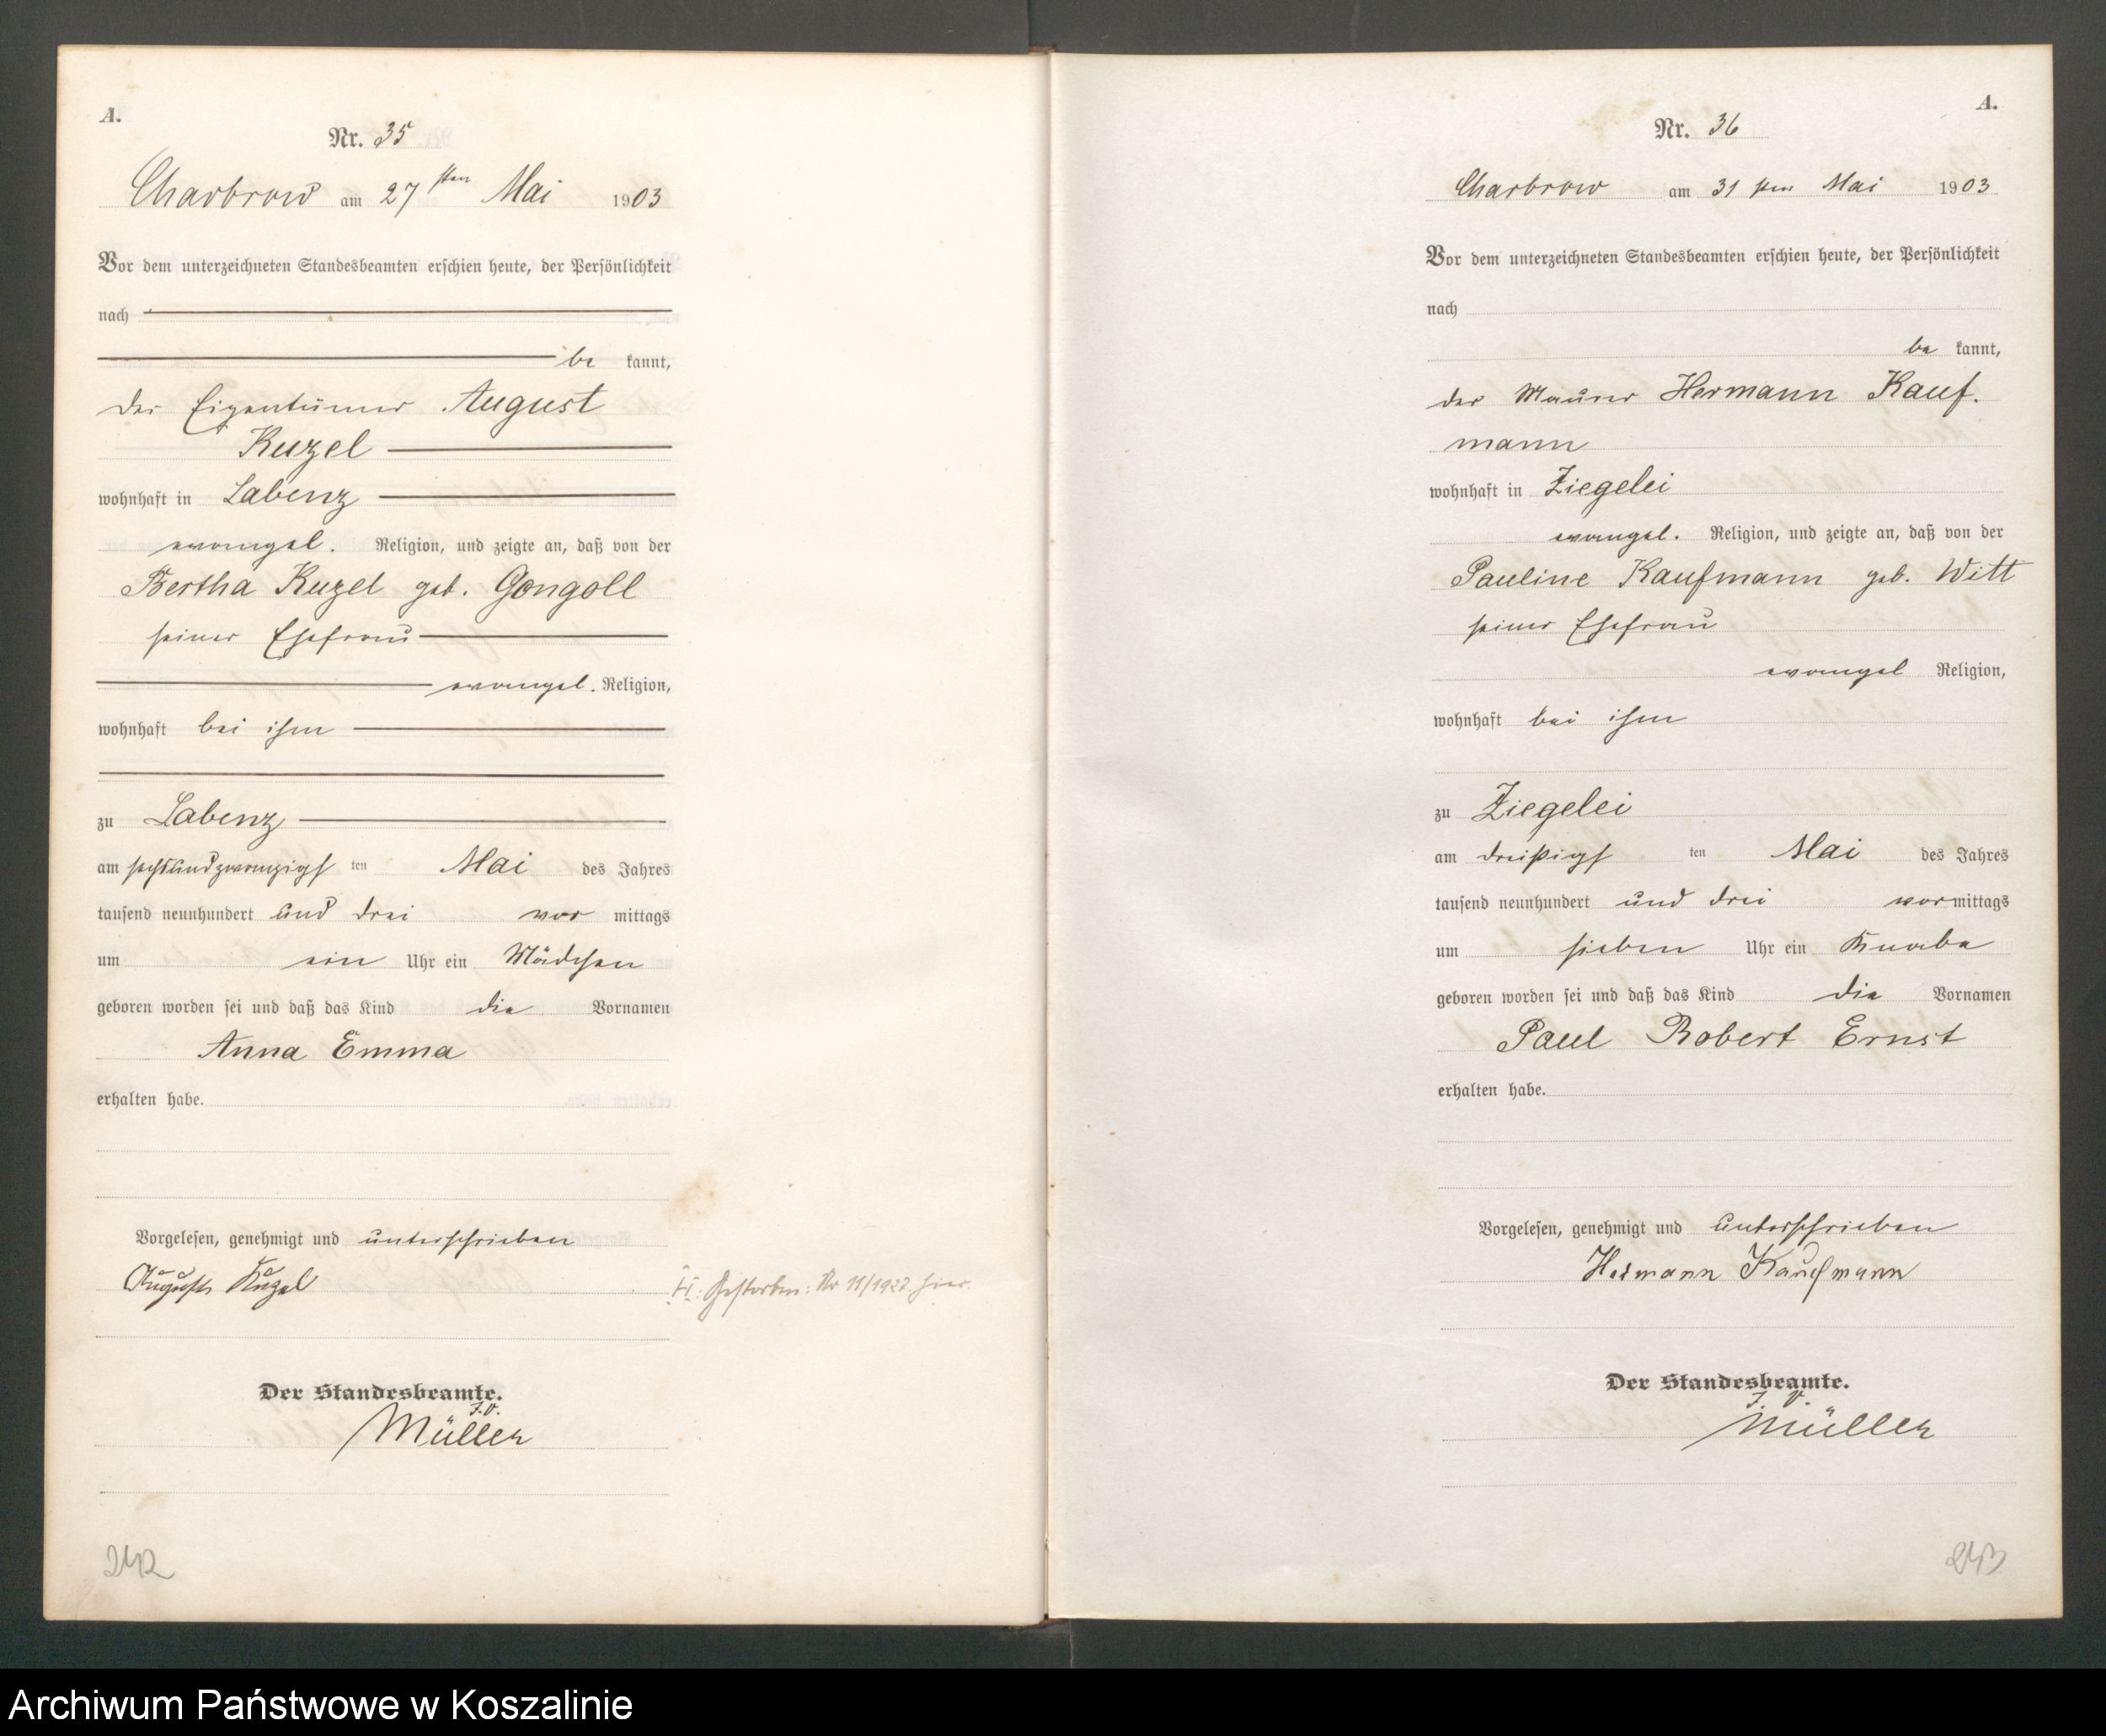 A.
Nr. 35
Charbrow am 27sten Mai 1903
Vor dem unterzeichneten Standesbeamten erschien heute, der Persönlichkeit
nach
be kannt,
der Eigentümer August
Kuzel
wohnhaft in Labenz
evangel. Religion, und zeigte an, daß von der
Bertha Kuzel geb. Gongoll
seiner Ehefrau
evangel. Religion,
wohnhaft bei ihm
zu Labenz
am sechsundzwanzigsten Mai des Jahres
tausend neunhundert und drei vor mittags
um ein Uhr ein Mädchen
geboren worden sei und daß das Kind die Vornamen
Anna Emma
erhalten habe.
Vorgelesen, genehmigt und unterschrieben
August Kuzel
Gestorben: Nr 11/1927 hier.
Der Standesbeamte.
J.V.
Müller
242
A.
Nr. 36
Charbrow am 31sten Mai 1903
Vor dem unterzeichneten Standesbeamten erschien heute, der Persönlichkeit
nach
be kannt,
der Maurer Hermann Kauf-
mann
wohnhaft in Ziegelei
evangel. Religion, und zeigte an, daß von der
Pauline Kaufmann geb. Witt
seiner Ehefrau
evangel Religion,
wohnhaft bei ihm
zu Ziegelei
am dreißigsten Mai des Jahres
tausend neunhundert und drei vormittags
um sieben Uhr ein Knabe
geboren worden sei und daß das Kind die Vornamen
Paul Robert Ernst
erhalten habe.
Vorgelesen, genehmigt und unterschrieben
Hermann Kaufmann
Der Standesbeamte.
J. V.
Müller
243
Archiwum Państwowe w Koszalinie